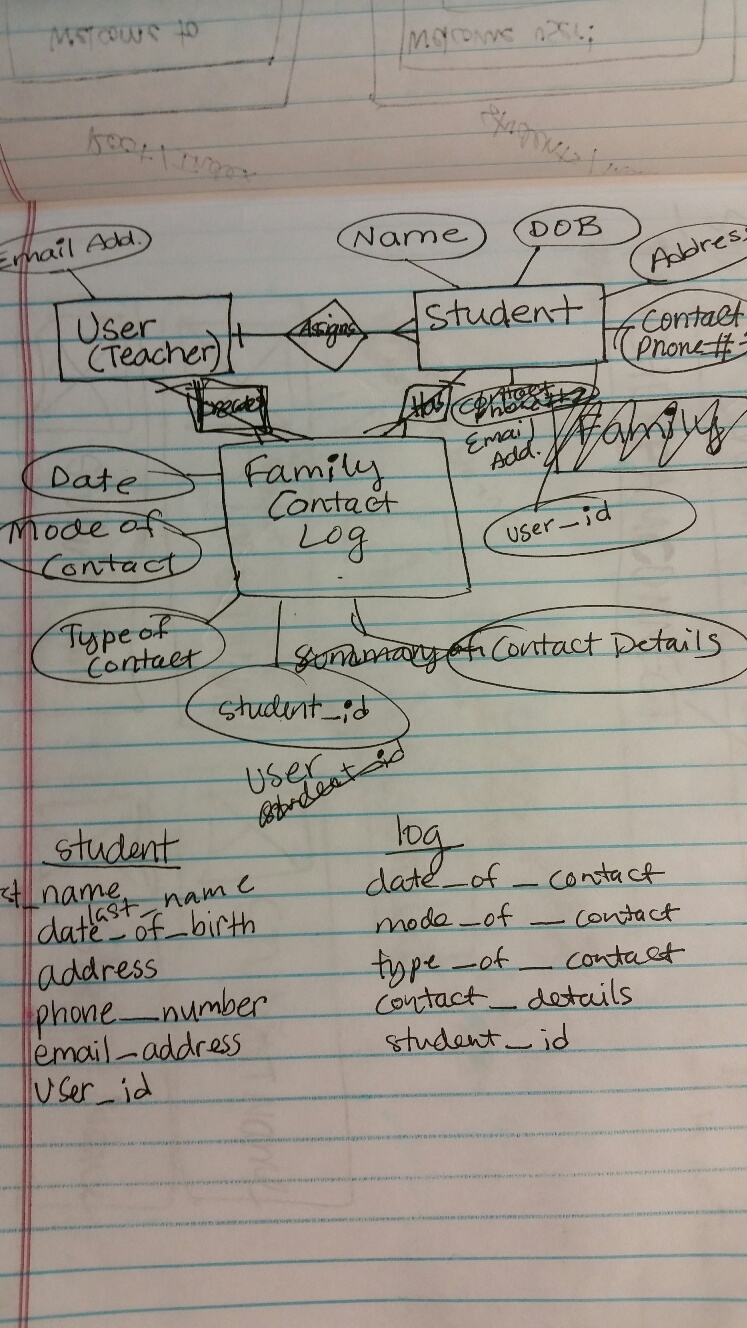 Welcome to
Email Add.
Name
DOB
Address
User
(Teacher)
Assigns
Student
Contact
Phone #
Creates
Has
Contact
Phone #2
Email
Add.
Family
Date
Family
Contact
Log
user_id
Mode of
Contact
Type of
Contact
Summary of Contact Details
student_id
User
student_id
student
log
st_name
last_name
date_of_birth
address
phone_number
email_address
User_id
date_of_contact
mode_of_contact
type_of_contact
contact_details
student_id